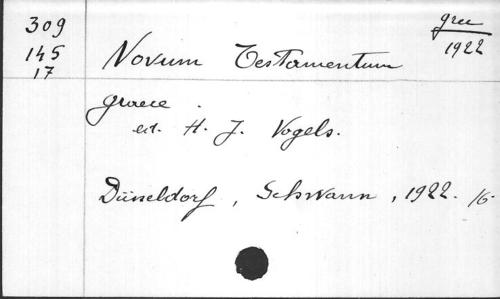 309
145
17
gree
1922
Novum Testamentum
graece.
ed. H. J. Vogels.
Düsseldorf, Schwann, 1922.